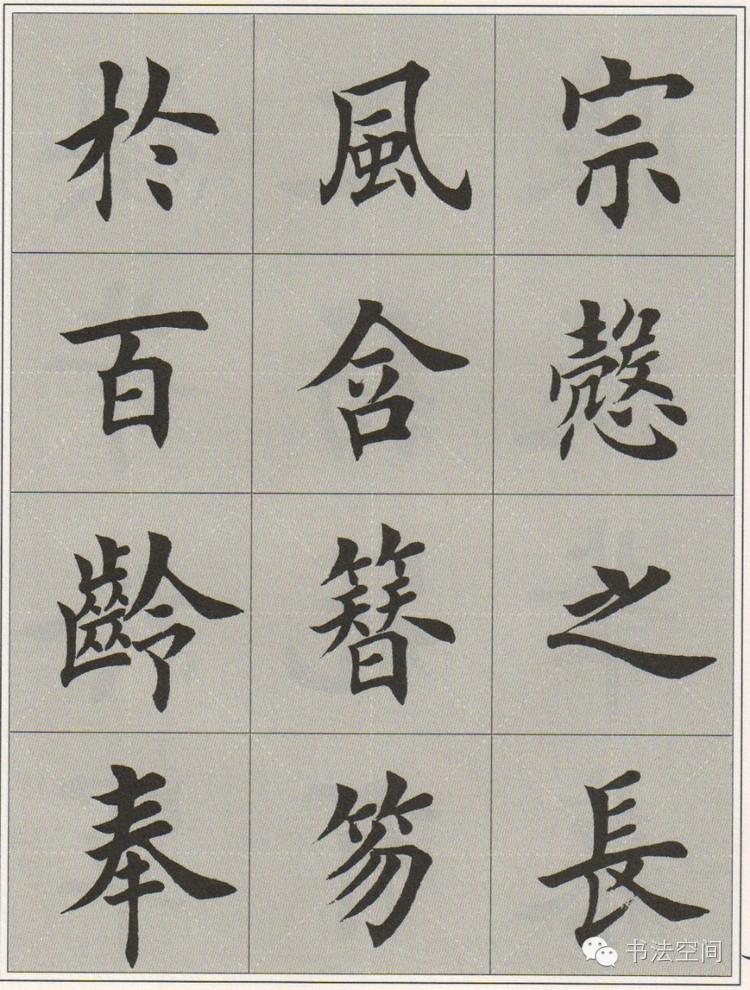 宗愨之長
風舍簪笏
於百齡奉
书法空间